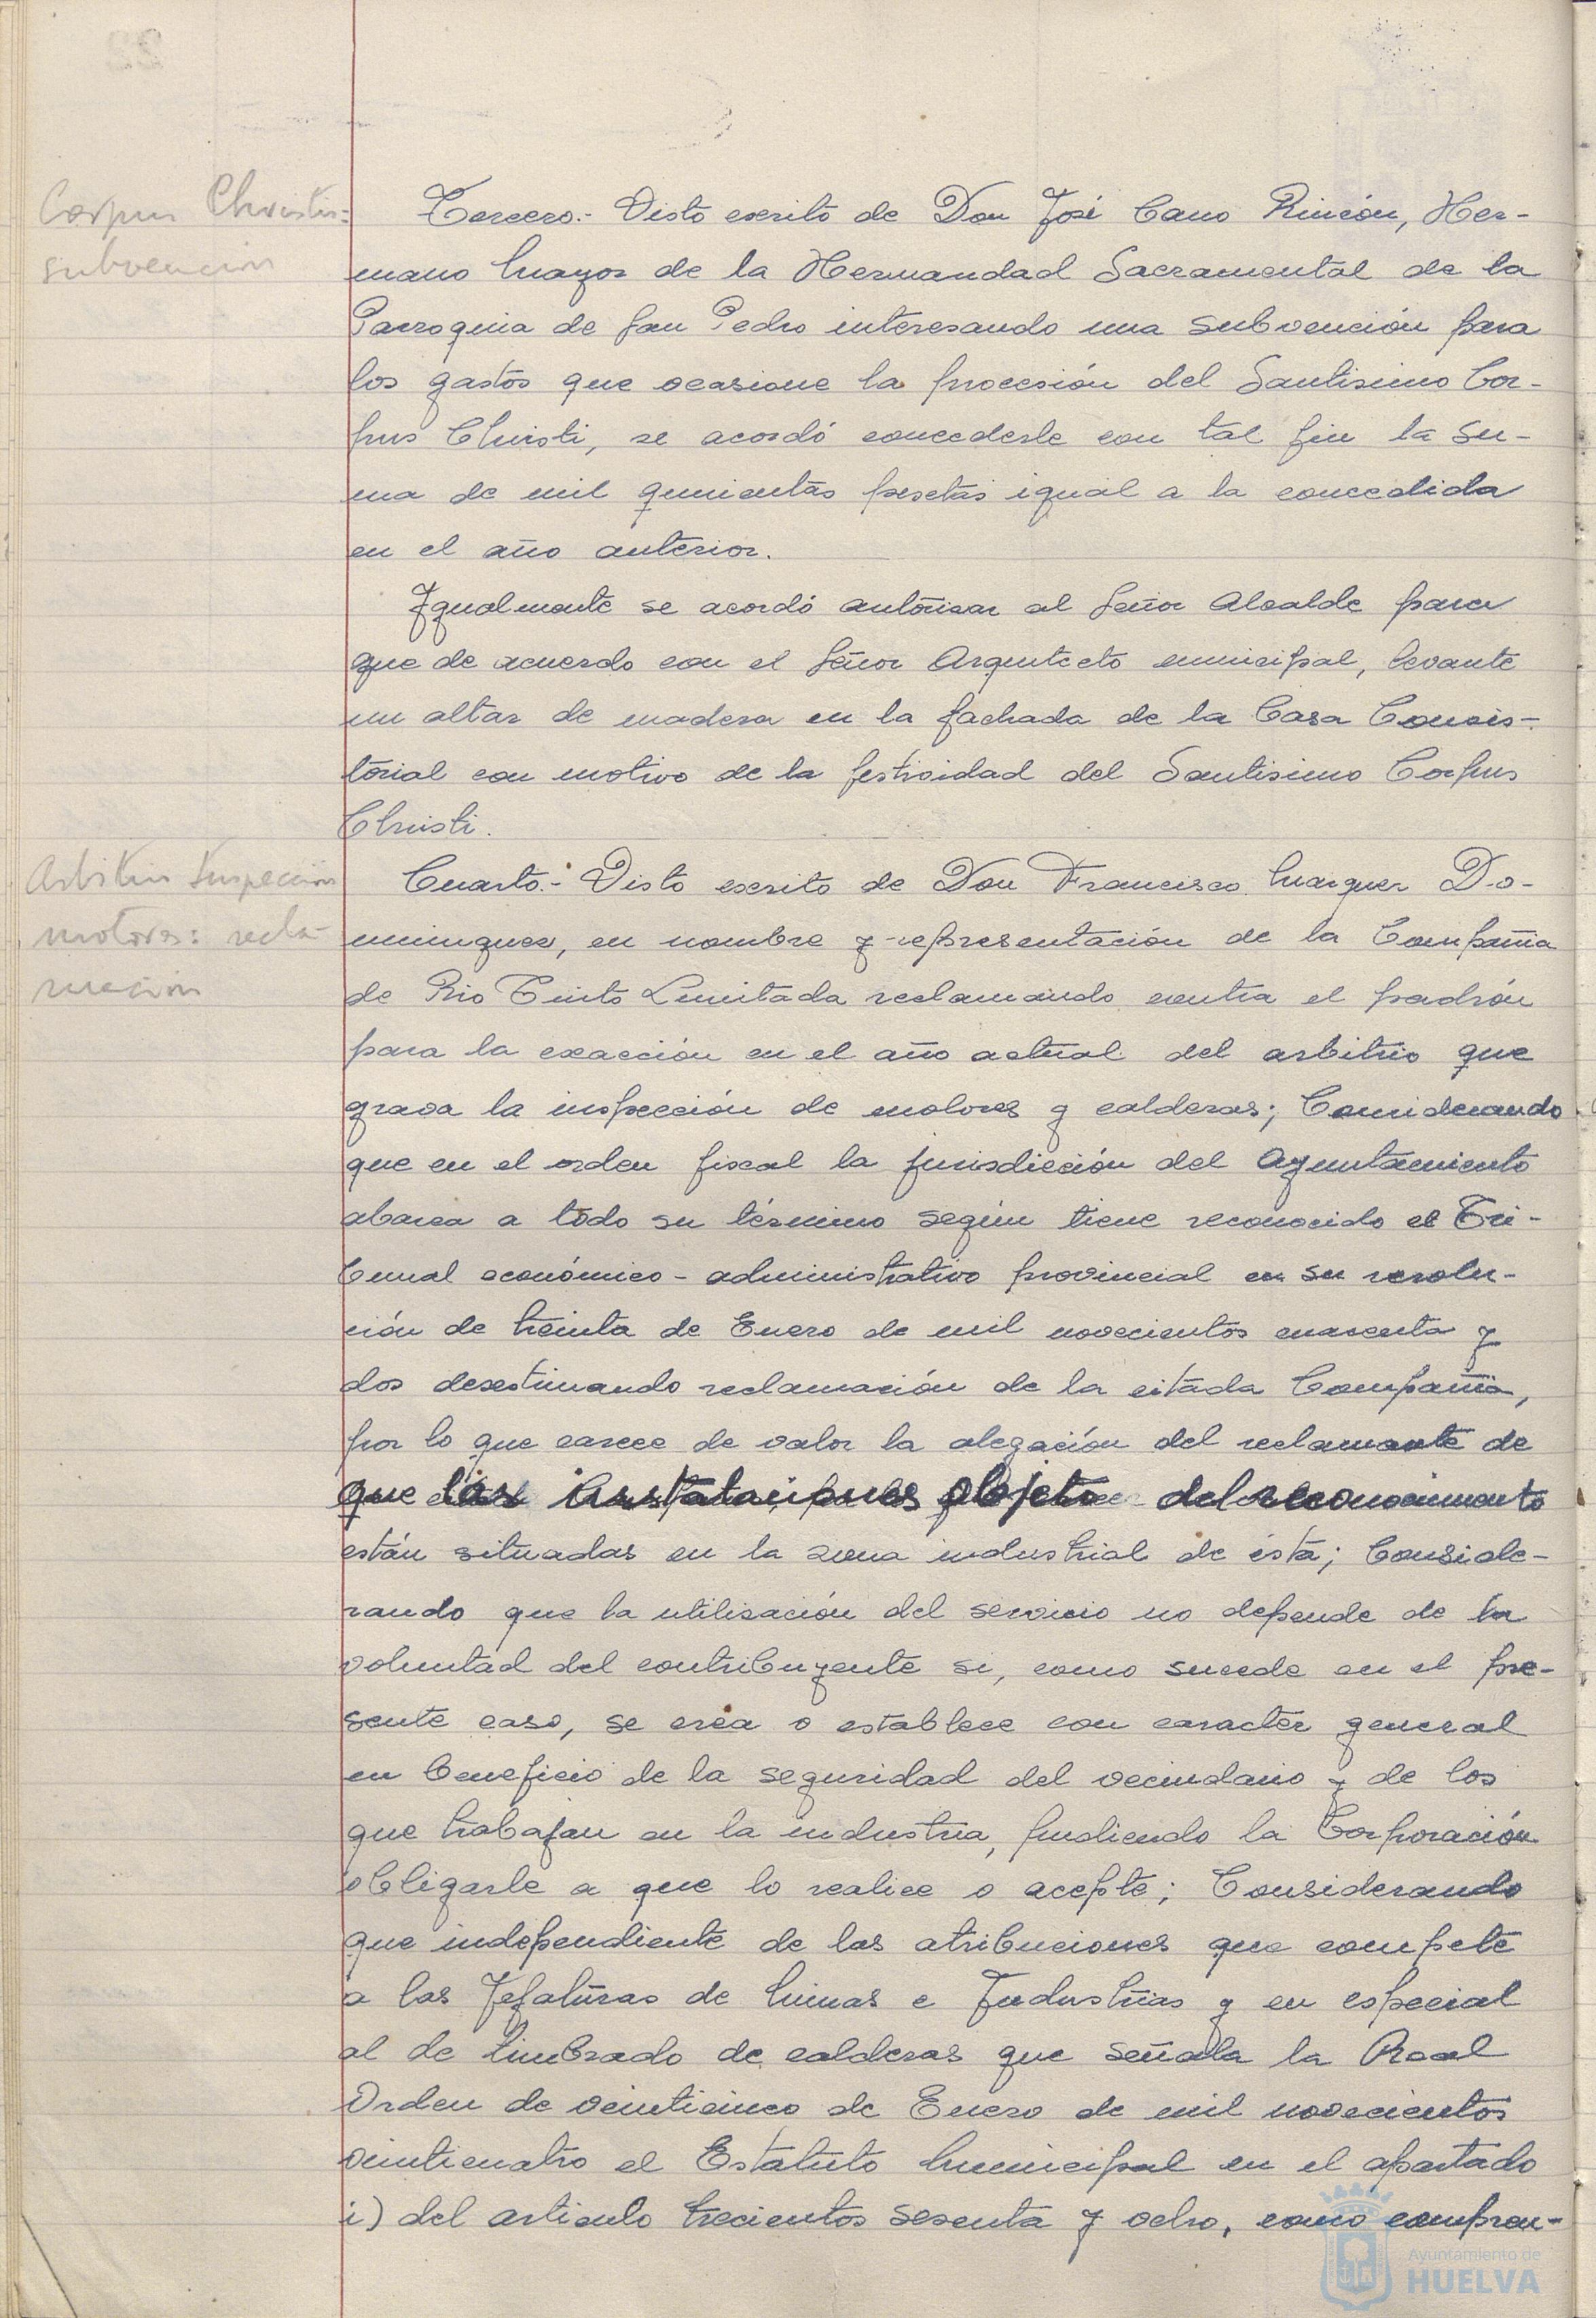 Corpus Christi:
subvencion
Tercero.- Visto escrito de Don José Cano Rincón, Her-
mano Mayor de la Hermandad Sacramental de la
Parroquia de San Pedro interesando una subvención para
los gastos que ocasione la procesión del Santisimo Cor-
pus Christi, se acordó concederle con tal fin la su-
ma de mil quinientas pesetas igual a la concedida
en el año anterior.
Igualmente se acordó autorisar al Señor Alcalde para
que de acuerdo con el Señor Arquitecto municipal, levante
un altar de madera en la fachada de la Casa Consis-
torial con motivo de la festividad del Santisimo Corpus
Christi.
Arbitrio Inspeccion
motores: recla-
macion
Cuarto.- Visto escrito de Don Francisco Marquez Do-
minguez, en nombre y representación de la Compañia
de Rio Tinto Limitada reclamando contra el padrón
para la exacción en el año actual del arbitrio que
grava la inspección de motores y calderas; Considerando
que en el orden fiscal la jurisdicción del Ayuntamiento
abarca a todo su término según tiene reconocido el Tri-
bunal económico-administrativo provincial en su resolu-
ción de treinta de Enero de mil novecientos cuarenta y
dos desestimando reclamación de la citada Compañia,
por lo que carece de valor la alegación del reclamante de
que las instalaciones objeto del reconocimiento
están situadas en la zona industrial de ésta; Conside-
rando que la utilisación del servicio no depende de la
voluntad del contribuyente si, como sucede en el pre-
sente caso, se crea o establece con caracter general
en beneficio de la seguridad del vecindario y de los
que trabajan en la industria, pudiendo la Corporación
obligarle a que lo realice o acepte; Considerando
que independiente de las atribuciones que compete
a las Jefaturas de Minas e Industrias y en especial
al de timbrado de calderas que señala la Real
Orden de veinticinco de Enero de mil novecientos
veinticuatro el Estatuto Municipal en el apartado
i) del articulo trecientos sesenta y ocho, como compren-
Ayuntamiento de
HUELVA